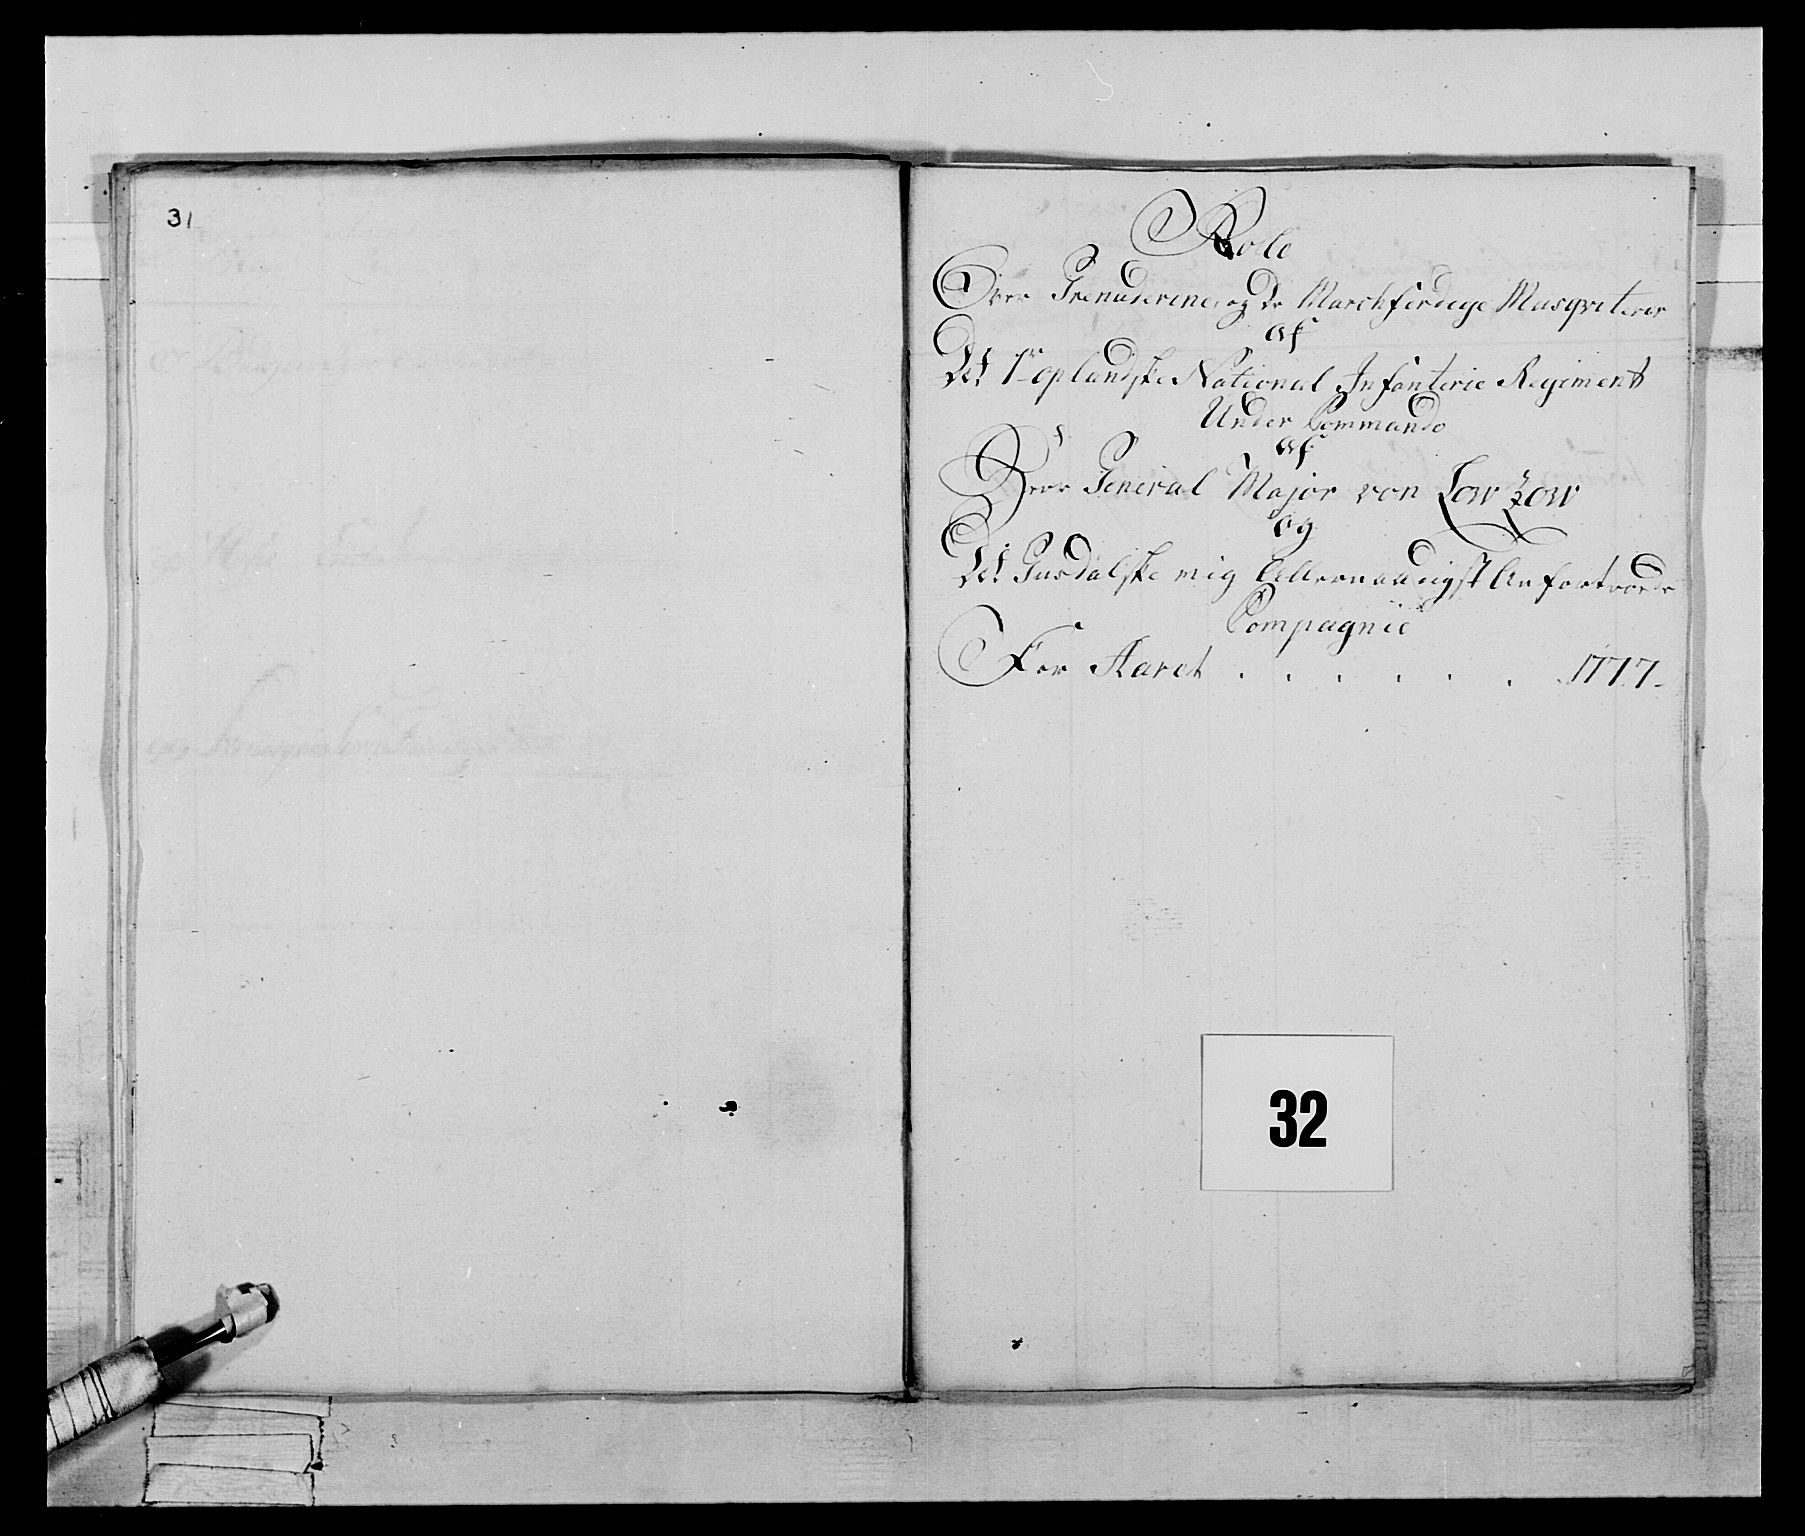 31
Rolle
Over Grenaderene, og De Marchferdige Musqviterer
af
Det 1te oplandske National Infanterie Regiment
Under Commando
af
Herr General Major von Lowzow
og
Det Gusdalske mig Allernaadigst Anfortroede
Compagnie
For Aaret . . . . . . 1777.
32